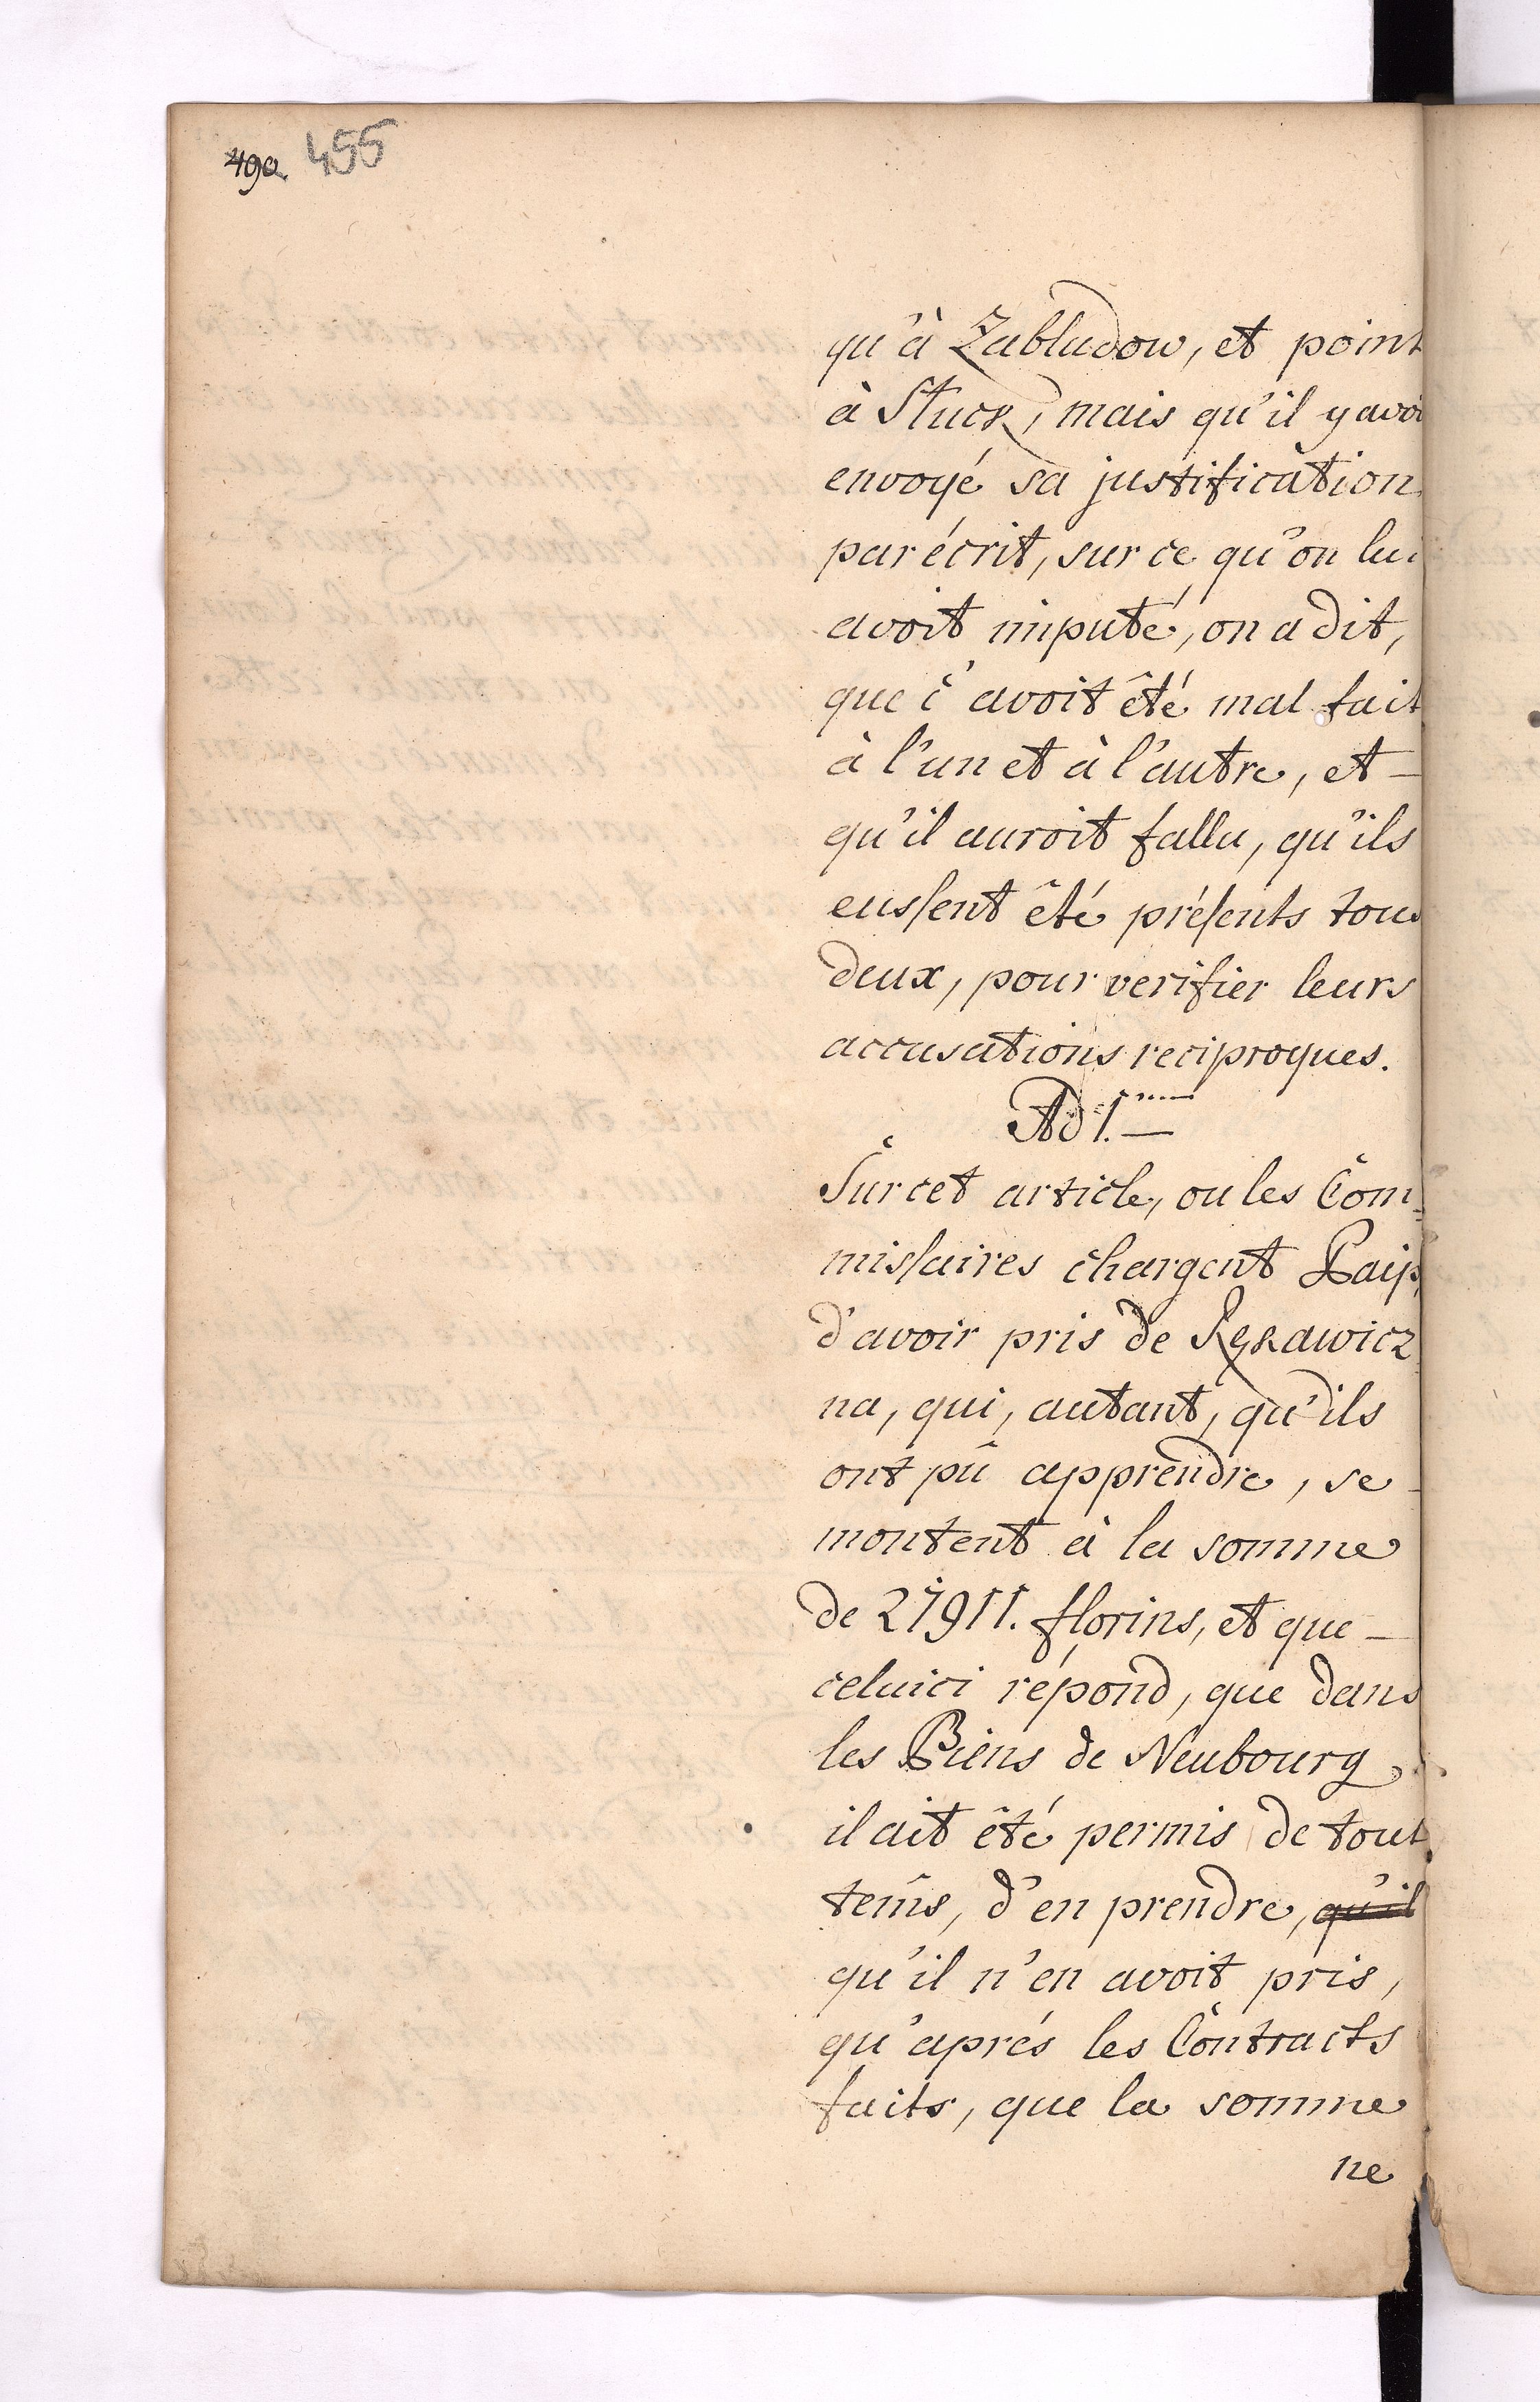 490. 455
qu'à Zabludow, et point
à Sluck, mais qu'il y avoi
envoyé sa justification
par écrit, sur ce qu'on lui
avoit imputé, on a dit,
que ç'avoit êté mal fait
à l'un et à l'autre, et –
qu'il auroit fallu, qu'ils
eussent êté présents tous
deux, pour verifier leurs
accusations reciproques.
Ad 1.
Sur cet article, ou les Com-
missaires chargent Paip
d'avoir pris de Rękawicz
na, qui, autant, qu'ils
ont pû apprendre, se
montent à la somme
de 27911. florins, et que –
celuici répond, que dans
les Biens de Neubourg
il ait êté permis de tout
tems, d'en prendre, qu'il
qu'il n'en avoit pris,
qu'aprés les Contracts
faits, que la somme
ne